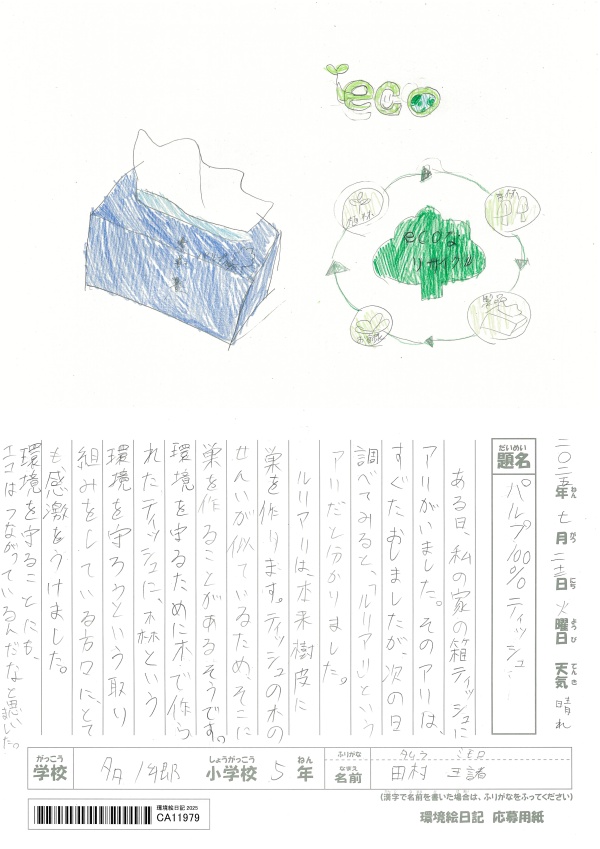 eco
ecoな
リサイクル
製品
二〇二五年 七月 二十二日 火曜日 天気 晴れ
ねん がつ にち ようび てんき
だいめい
題名
パルプ100%ティッシュ
ある日、私の家の箱ティッシュに
アリがいました。そのアリは、
すぐたおしましたが、次の日
調べてみると、「ルリアリ」という
アリだと分かりました。
ルリアリは、本来樹皮に
巣を作ります。ティッシュの木の
せんいが似ているため、そこに
巣を作ることがあるそうです。
環境を守るために木で作ら
れたティッシュに、森という
環境を守ろうという取り
組みをしている方々に、とて
も感激をうけました。
環境を守ることにも、
エコはつながっているんだなと思いました。
がっこう
学校
しょうがっこう
小学校
5
ねん
年
ふりがな
タムラ
なまえ
名前
田村
(漢字で名前を書いた場合は、ふりがなをふってください)
環境絵日記 2025
CA11979
環境絵日記 応募用紙